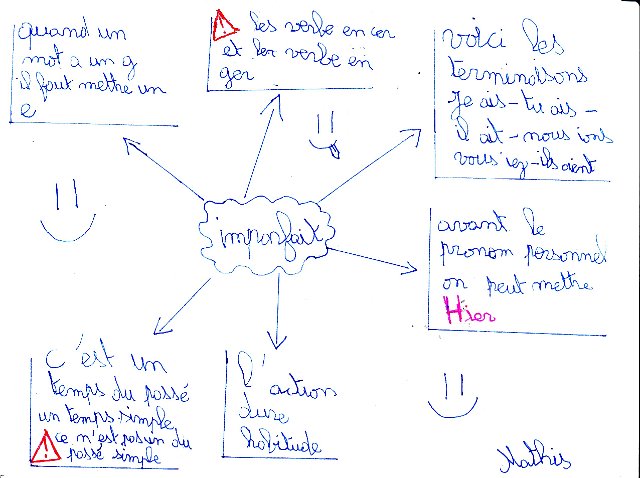 quand un
mot a un g
il faut mettre un
e
les verbe en cer
et les verbe en
ger
voici les
terminaisons
Je ais - tu ais -
il ait - nous ions
vous iez - ils aient
imparfait
avant le
pronom personnel
on peut mettre
Hier
c'est un
temps du passé
un temps simple
ce n'est pas un du
passé simple
l'action
d'une
habitude
Mathis